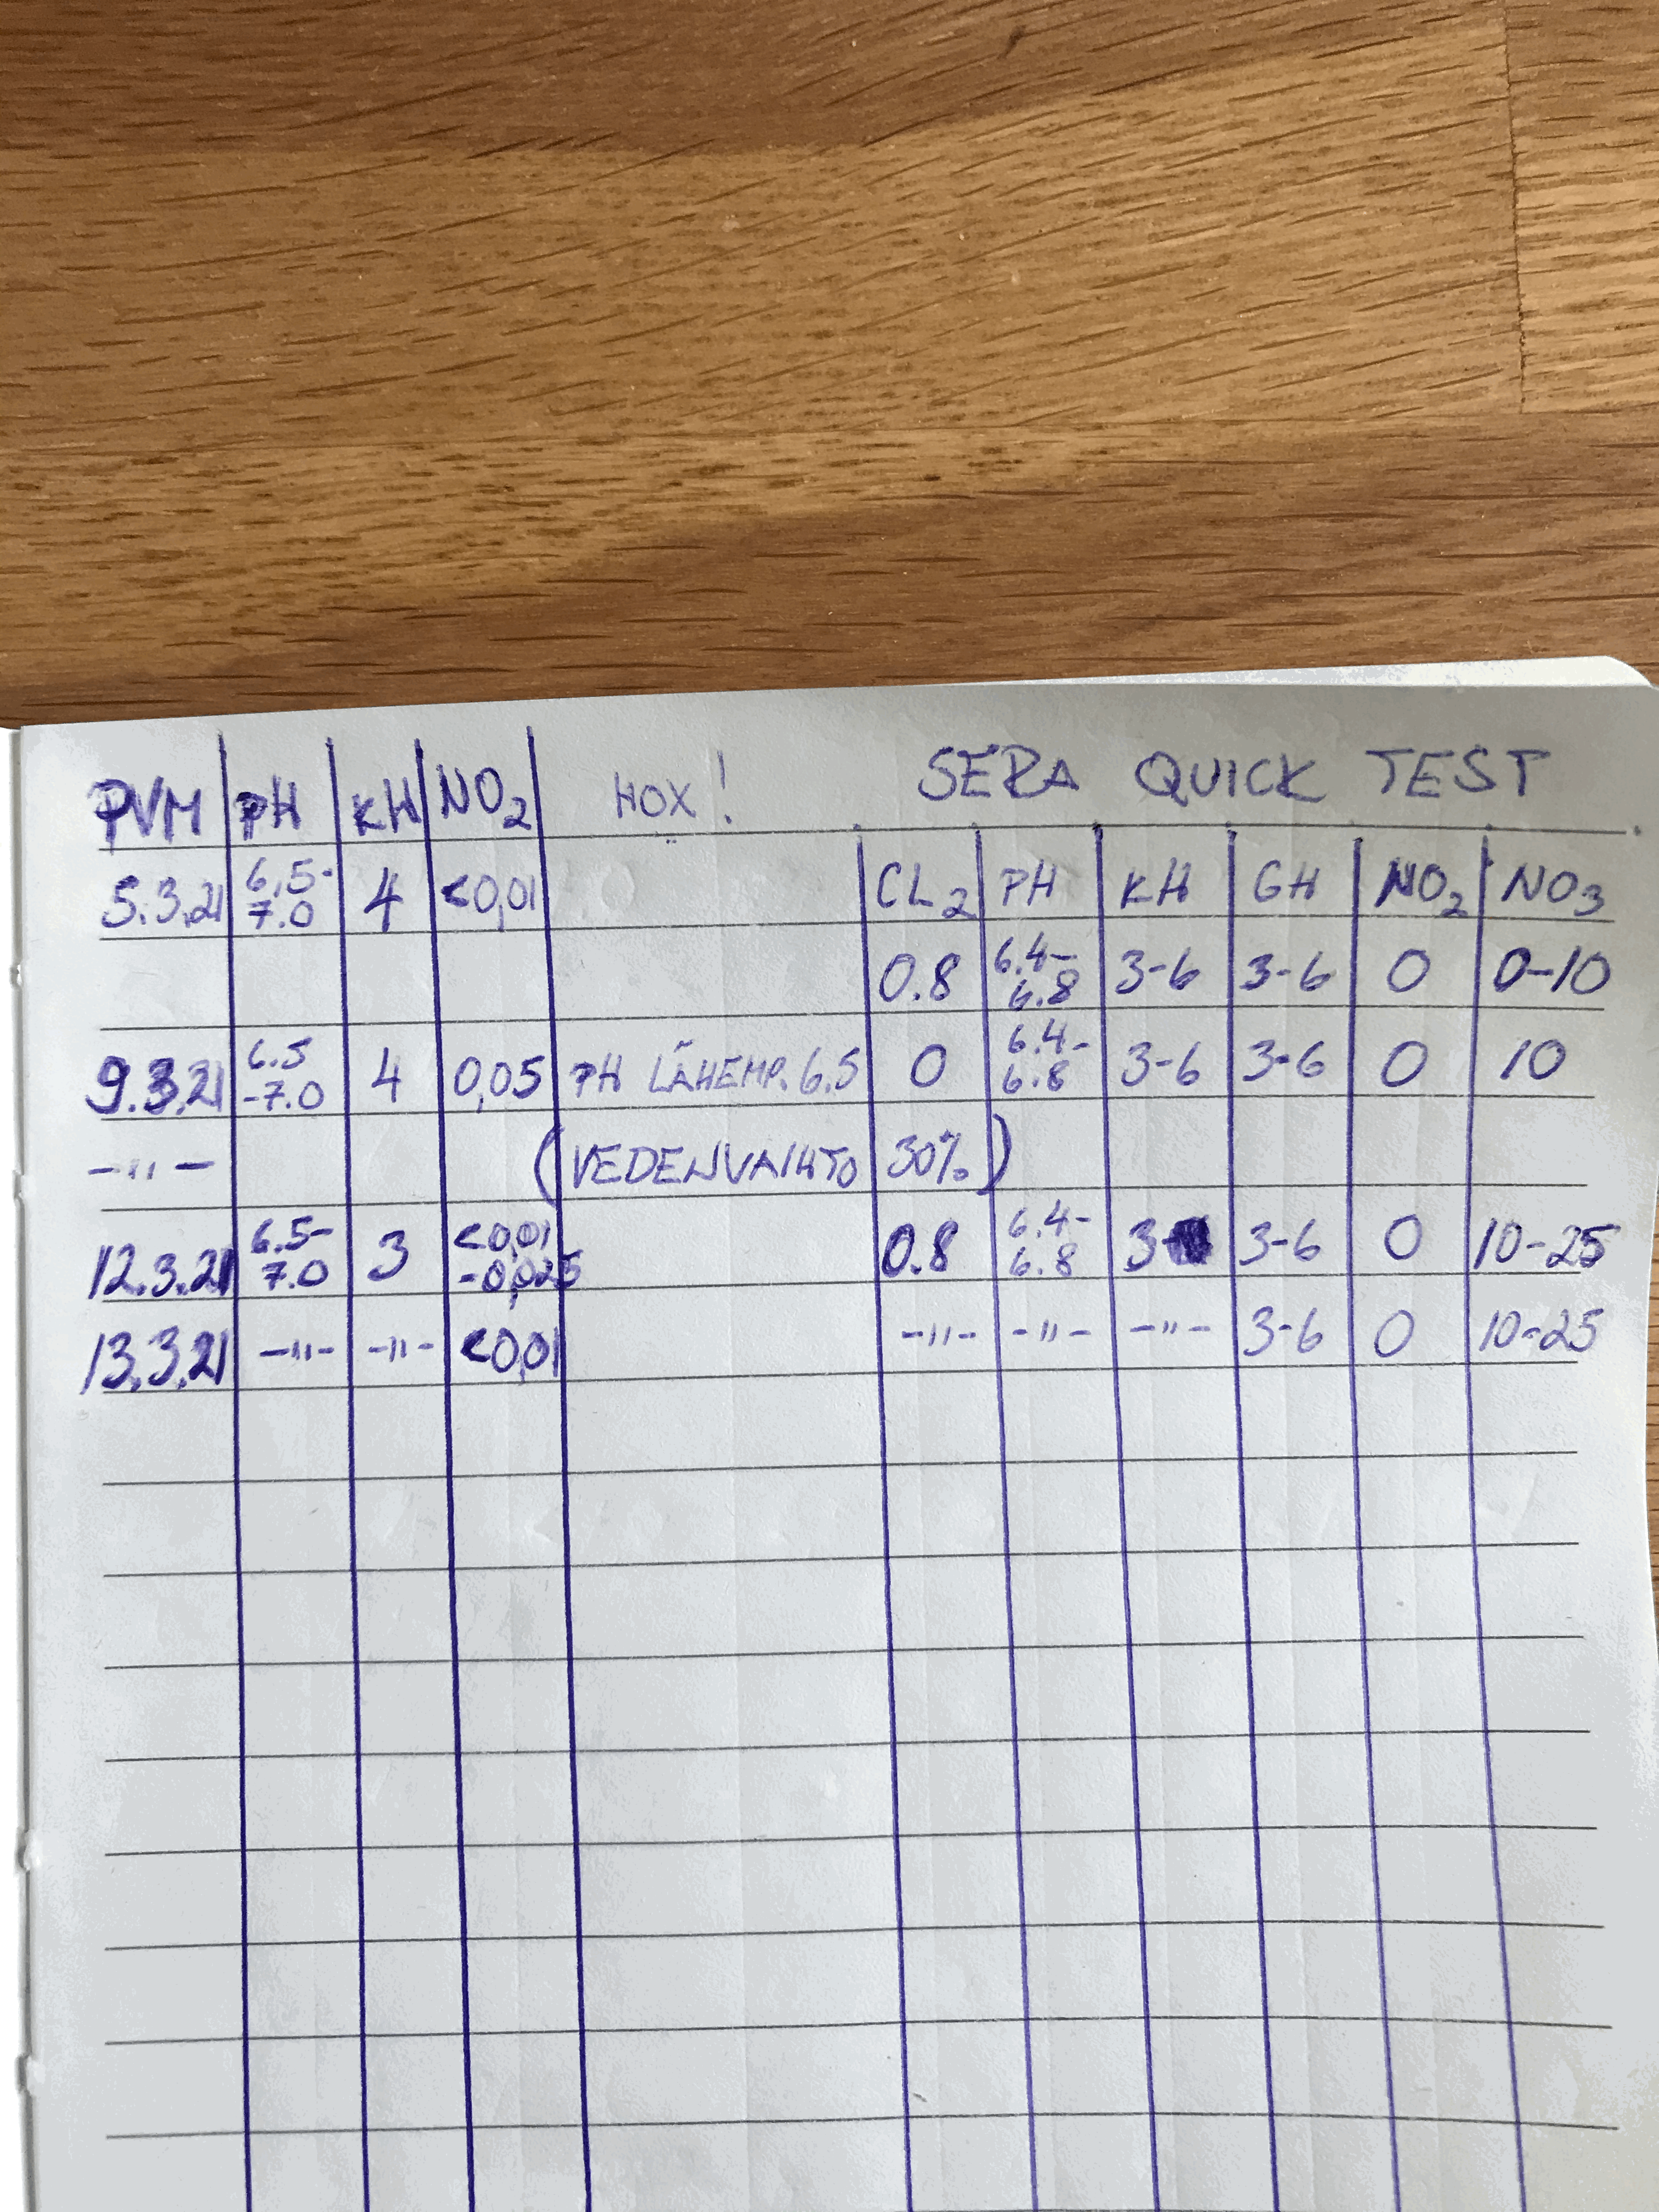 PVM PH KH NO2 HOX! SERA QUICK TEST
5.3.21 6.5-7.0 4 <0,01 CL2 PH KH GH NO2 NO3
0.8 6.4-6.8 3-6 3-6 0 0-10
9.3.21 6.5-7.0 4 0,05 PH LÄHEMP. 6.5 0 6.4-6.8 3-6 3-6 0 10
-"- (VEDENVAIHTO 30%)
12.3.21 6.5-7.0 3 <0,01-0,025 0.8 6.4-6.8 3 3-6 0 10-25
13.3.21 -"- -"- <0,01 -"- -"- -"- 3-6 0 10-25